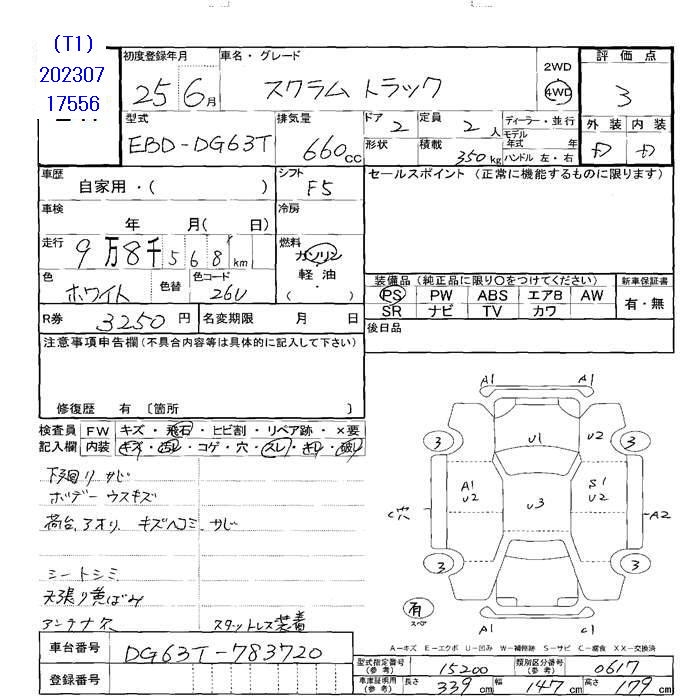 (T1)
202307
17556
初度登録年月
25年6月
車名・グレード
スクラム トラック
2WD
4WD
評価点
3
外装 内装
D D
型式
EBD-DG63T
排気量
660cc
ドア 2
形状
定員 2人
積載 350kg
ディーラー・並行
モデル
年式 年
ハンドル 左・右
車歴
自家用・( )
シフト
F5
セールスポイント (正常に機能するものに限ります)
車検
年 月( 日)
冷房
走行
9万8千568km
燃料
ガソリン
軽油
( )
色
ホワイト
色替
色コード
26U
装備品 (純正品に限り○をつけてください)
PS PW ABS エアB AW
SR ナビ TV カワ
新車保証書
有・無
R券 3250円
名変期限 月 日
後日品
注意事項申告欄(不具合内容等は具体的に記入して下さい)
修復歴 有 〔箇所 〕
検査員 FW キズ・飛石・ヒビ割・リペア跡・×要
記入欄 内装 キズ・汚レ・コゲ・穴・スレ・キレ・破レ
下廻り サビ
ボデー ウスキズ
荷台、アオリ キズヘコミ、サビ
シートシミ
天張り黄ばみ
アンテナ欠
スタットレス装着
A1 A1
3 U1 U2 3
A1 U2 U3 S1 U2
C穴 A2
3 3
有
スペア
A1 C1
A-キズ E-エクボ U-凹み W-補修跡 S-サビ C-腐食 XX-交換済
車台番号 DG63T-783720
登録番号
型式指定番号(参考) 15200 類別区分番号(参考) 0617
車庫証明用(参考) 長さ 339cm 幅 147cm 高さ 179cm